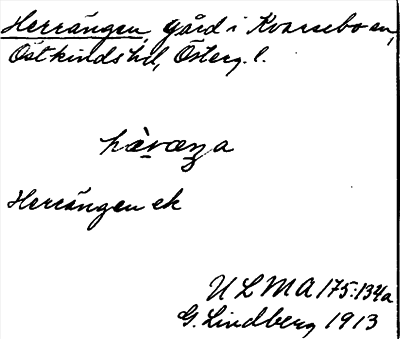 Herrängen, gård i Kvarsebo sn,
Östkinds hd, Österg. l.
hæ̀ræŋa
Herrängen ek
ULMA 175:134a
G. Lindberg 1913